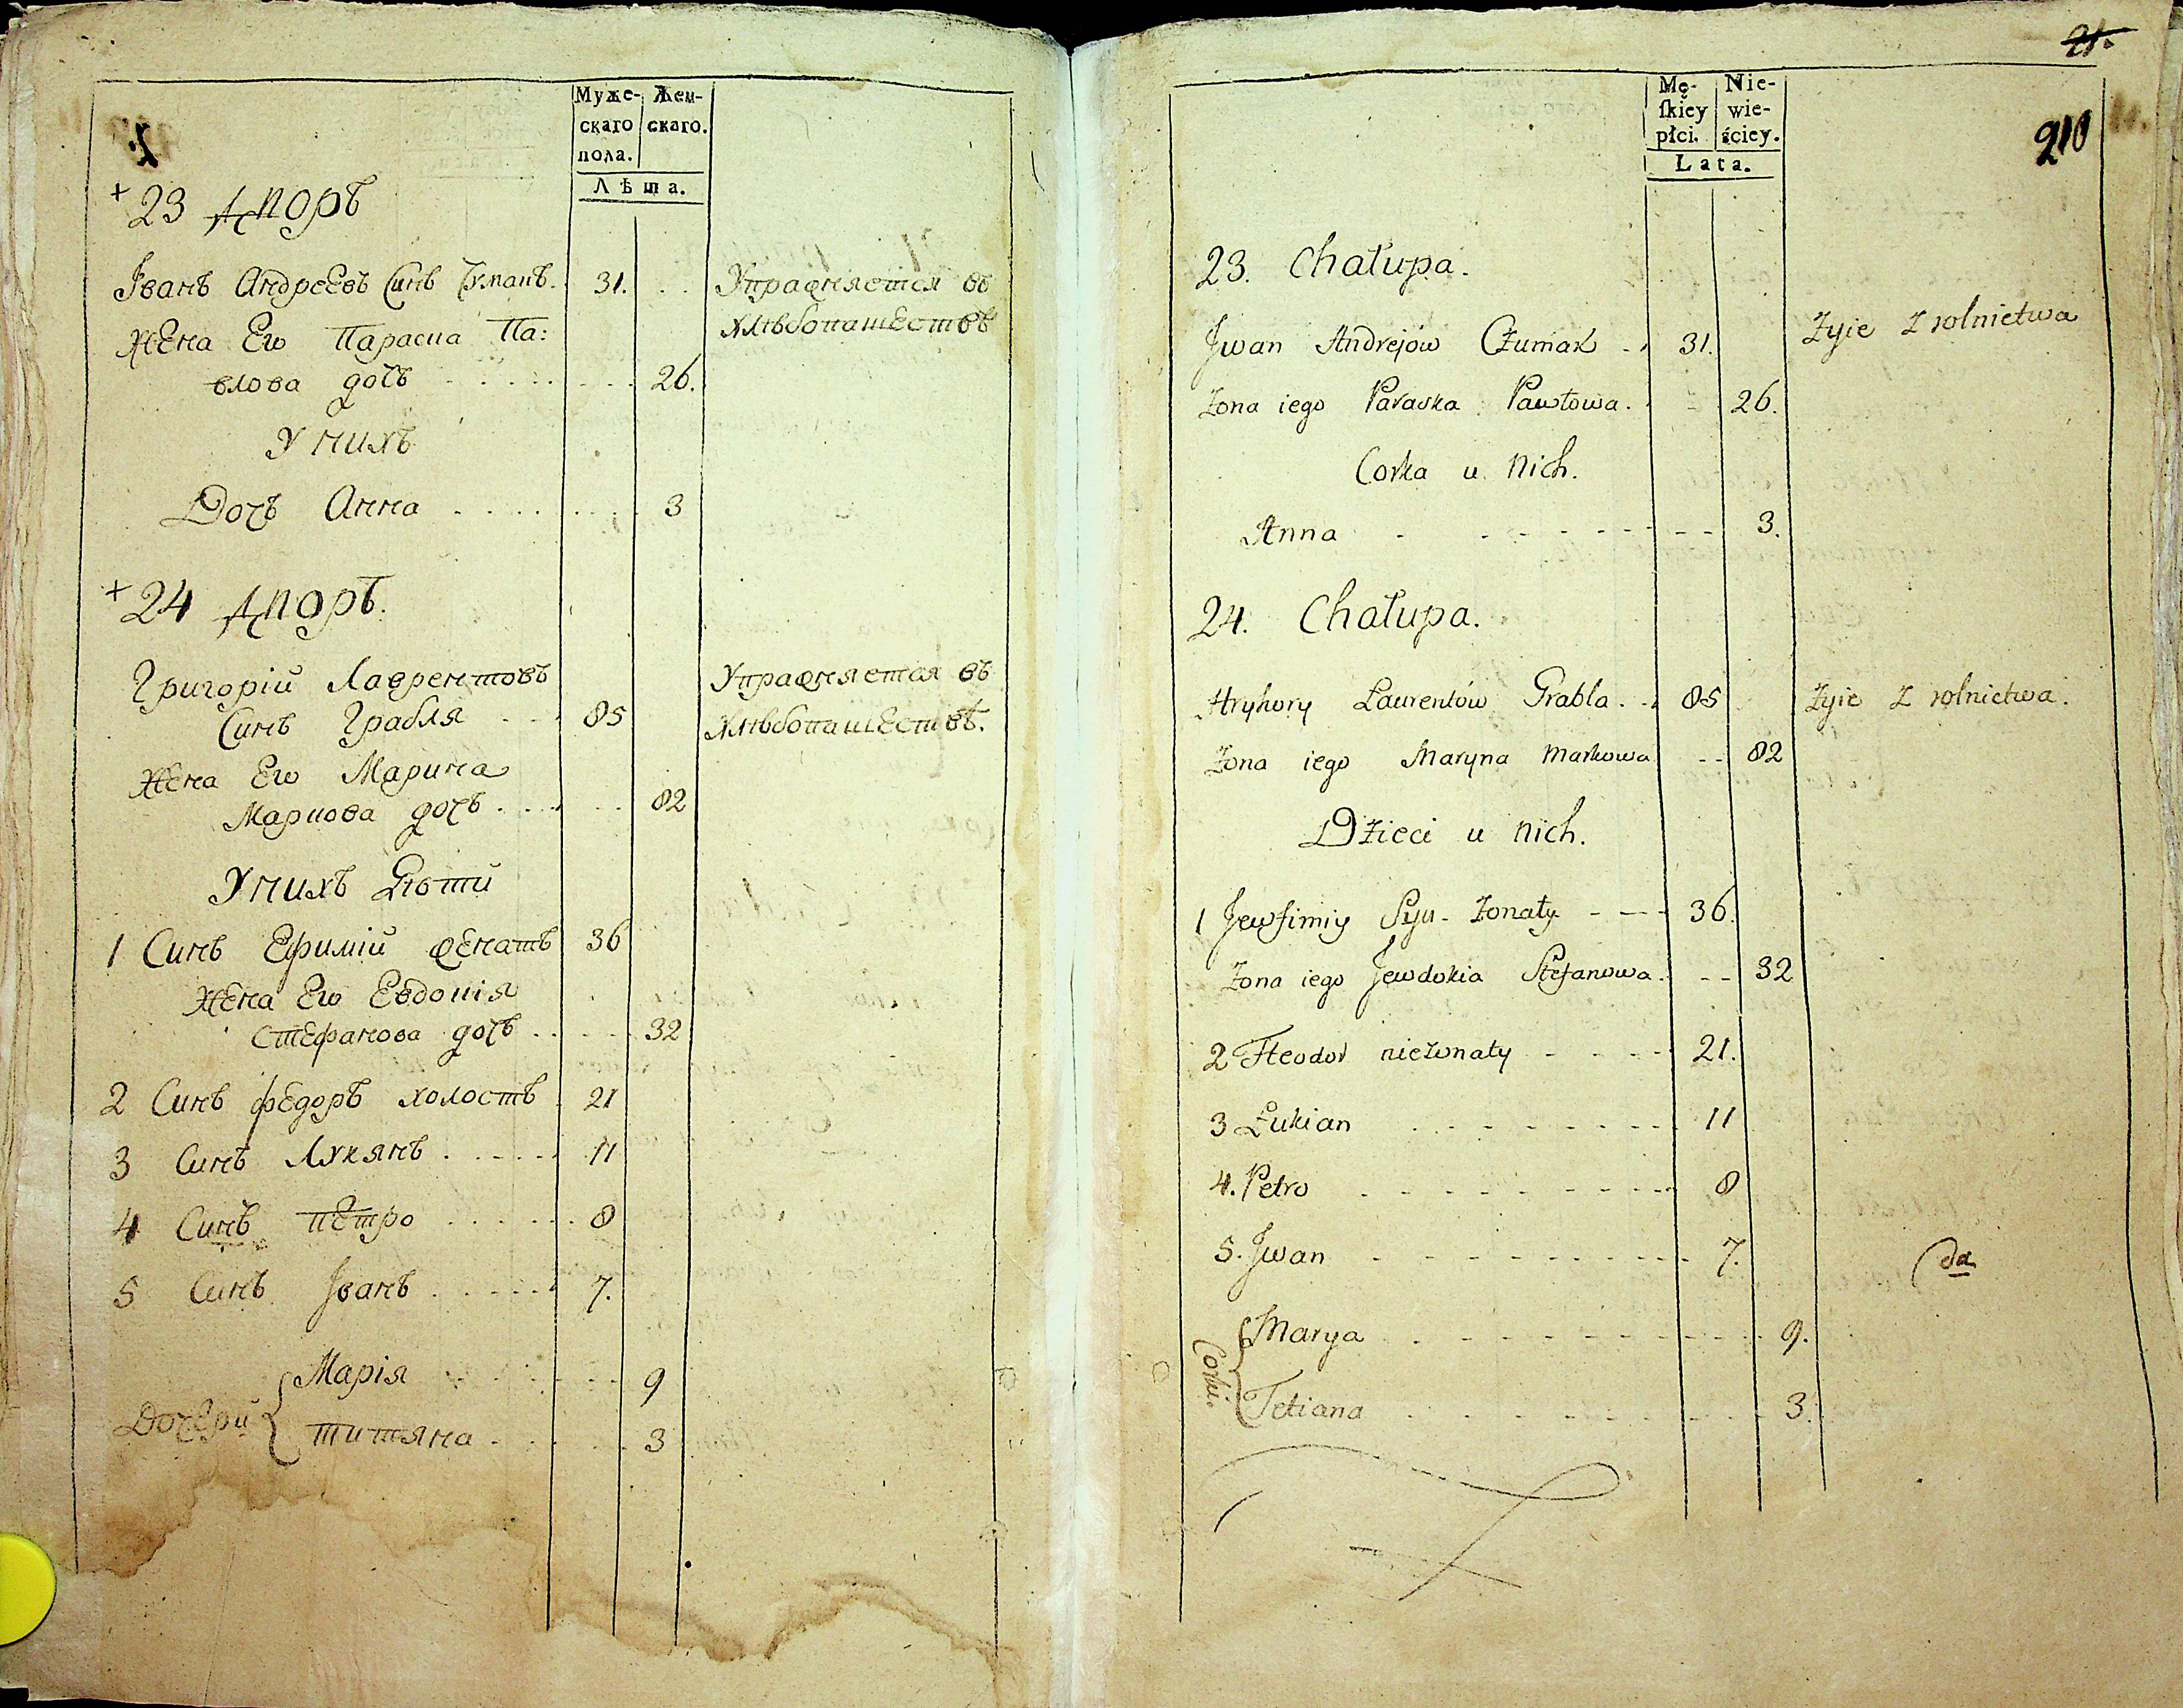 Муже- Жен-
скаго скаго.
пола.
Лѣта.
+ 23 Дворъ
Іванъ Андреевъ Синъ Чумакъ. 31. Упражняется въ
Жена Его Параска Па: хлѣбопашествѣ
влова дочъ 26.
У нихъ
Дочъ Анна 3
+ 24 Дворъ.
Григорій Лаврентовъ Упражняется въ
Синъ Грабля 85 хлѣбопашествѣ.
Жена Его Марина
Маркова дочъ 82
У нихъ Дѣти
1 Синъ Ефимій женатъ 36
Жена Его Евдокія
Стефанова дочъ 32
2 Синъ Федоръ холостъ 21
3 Синъ Лукянъ 11
4 Синъ Петро 8
5 Синъ Іванъ 7.
Дочери { Марія 9
Титяна 3
21.
Mę- Nie-
ſkiey wie-
płci. ściey.
Lata.
210
23. Chałupa.
Jwan Andrejów Czumak 31. Żyie z rolnictwa
Żona iego Paraska Pawłowa. 26.
Corka u nich.
Anna 3.
24. Chałupa.
Hryhory Laurentów Grabla. 85 Żyie z rolnictwa.
Żona iego Maryna Markowa 82
Dzieci u nich.
1 Jewfimiy Syn żonaty 36.
Żona iego Jewdokia Stefanowa. 32
2 Fteodor nieżonaty 21.
3 Łukian 11
4. Petro 8
5. Jwan 7.
da
Corki. { Marya 9.
Tetiana 3.